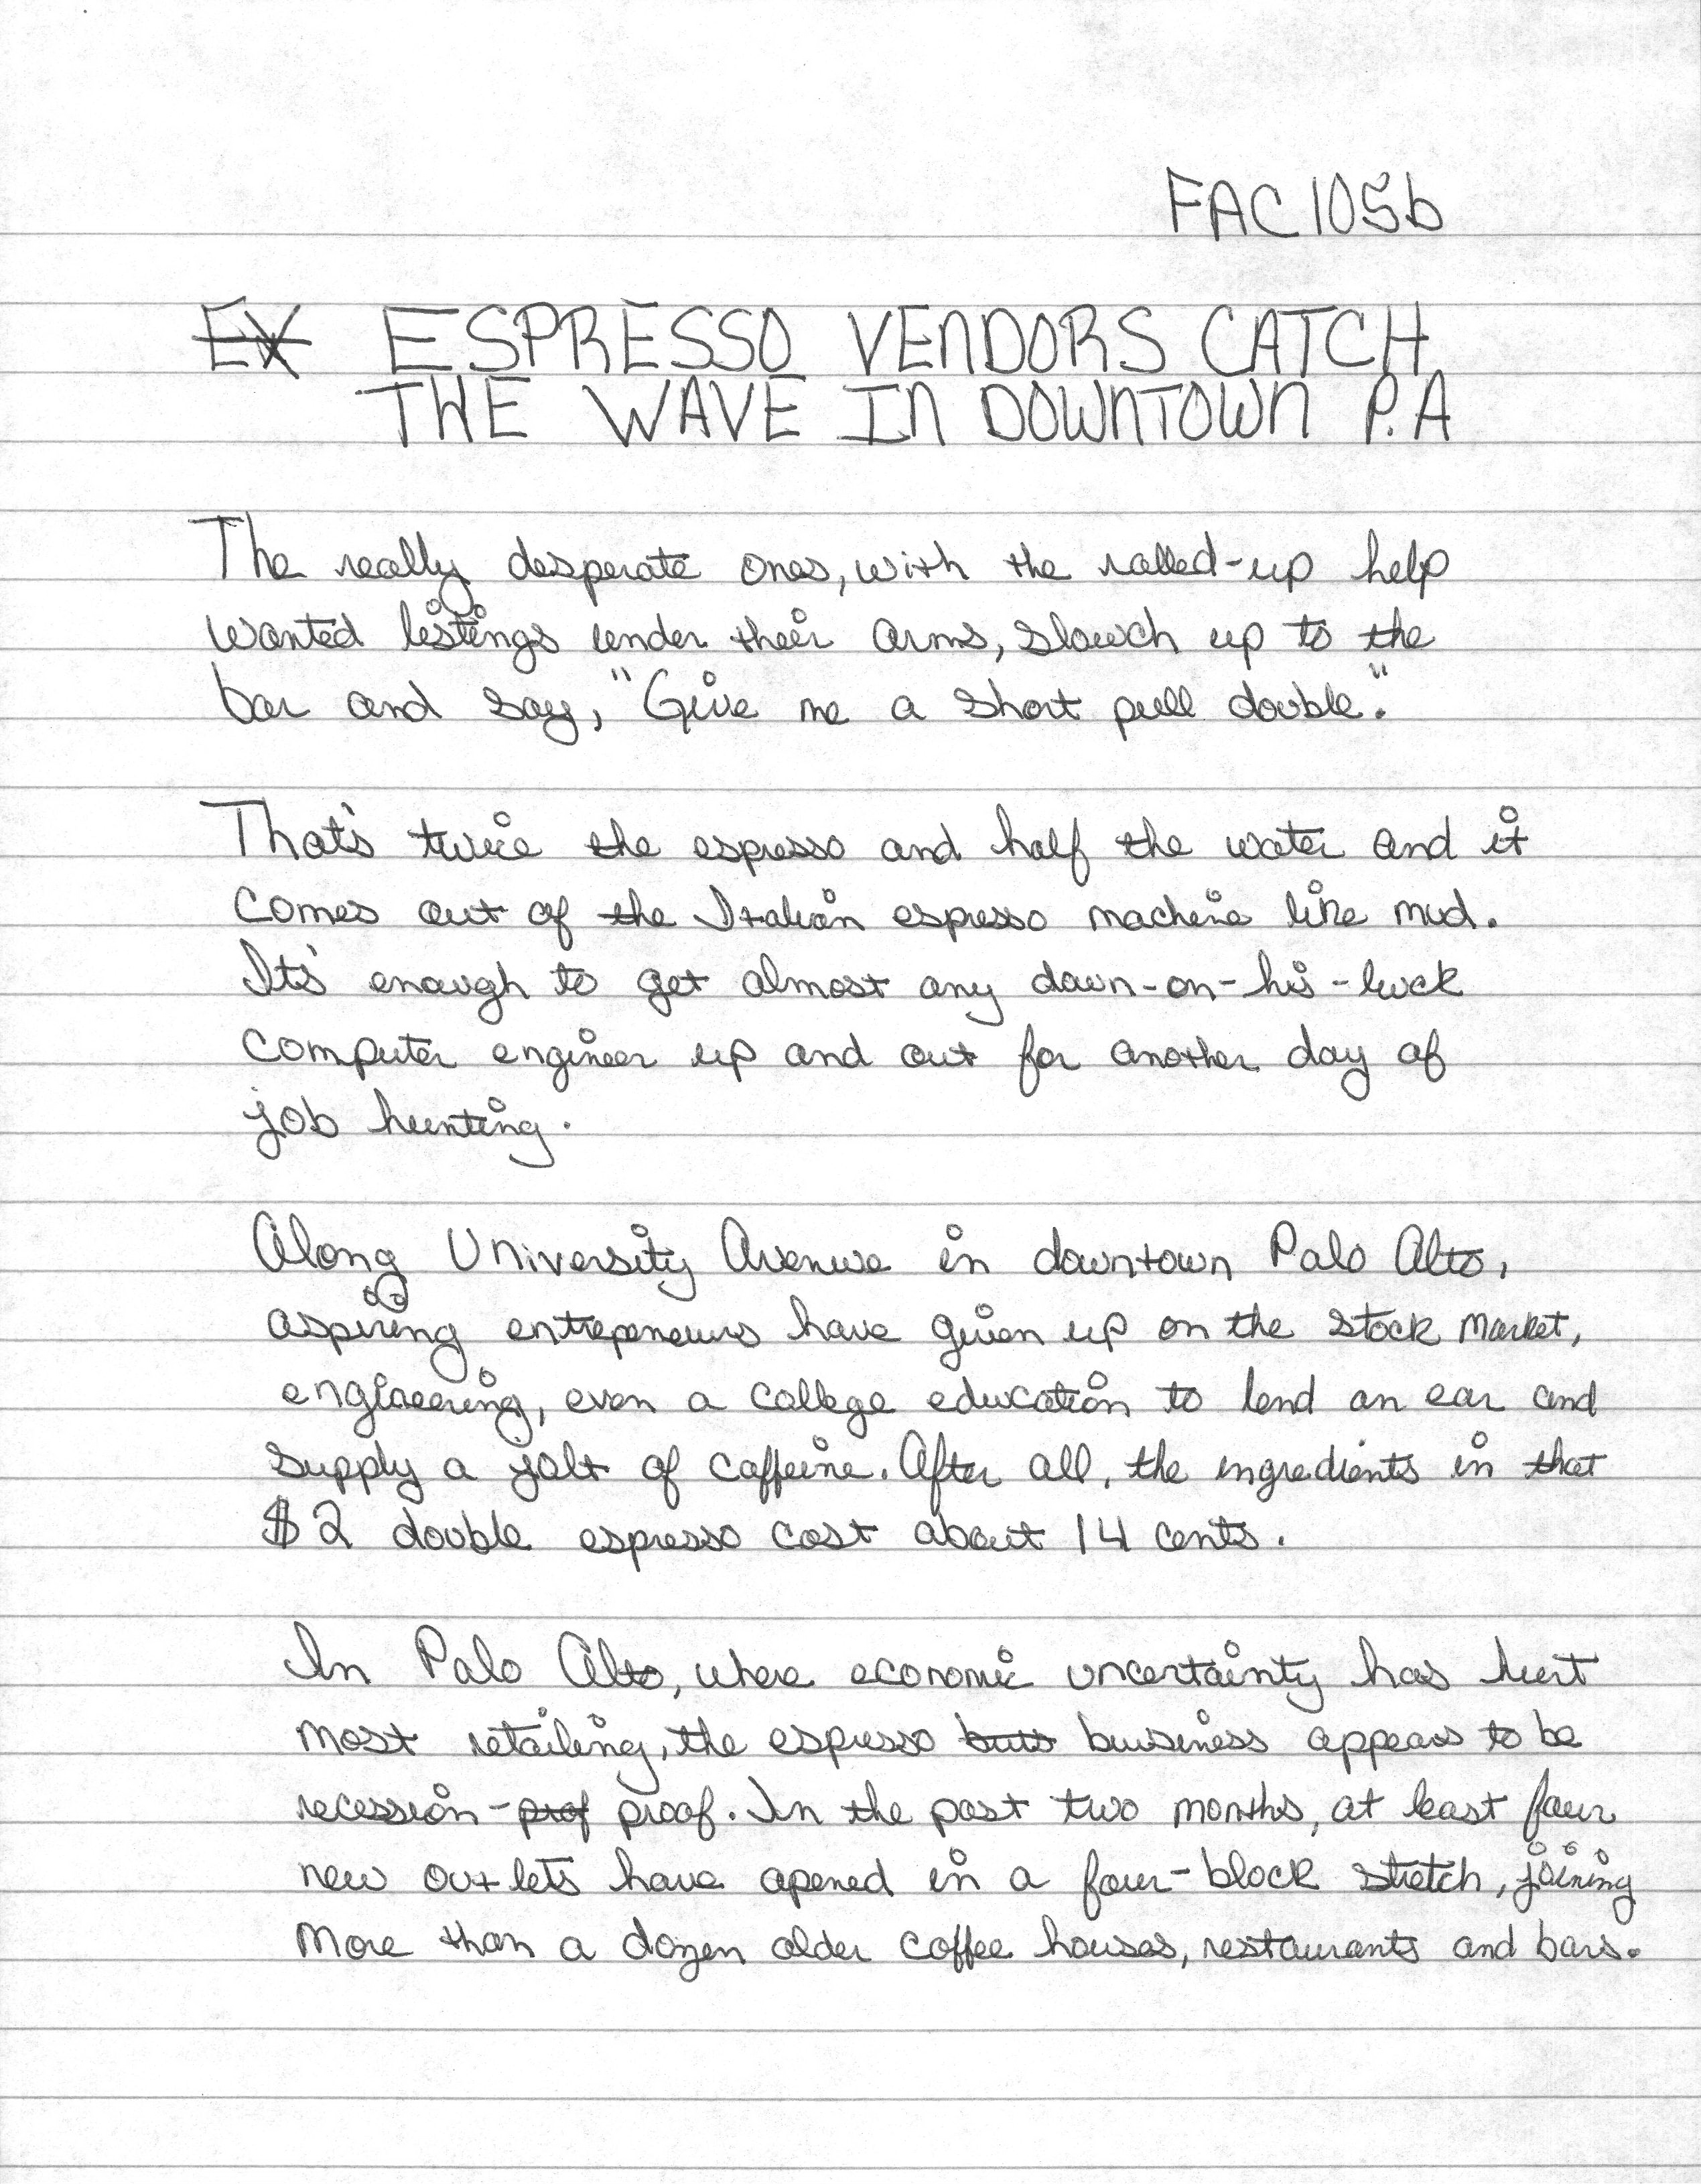 FAC105b
EX ESPRESSO VENDORS CATCH
THE WAVE IN DOWNTOWN P.A
The really desperate ones, with the rolled-up help
wanted listings under their arms, slouch up to the
bar and say, "Give me a short pull double."
That's twice the espresso and half the water and it
comes out of the Italian espresso machine like mud.
It's enough to get almost any down-on-his-luck
computer engineer up and out for another day of
job hunting.
Along University Avenue in downtown Palo Alto,
aspiring entrepeneurs have given up on the stock market,
engineering, even a college education to lend an ear and
supply a jolt of caffeine. After all, the ingredients in that
$2 double espresso cost about 14 cents.
In Palo Alto, where economic uncertainty has hurt
most retailing, the espresso business appears to be
recession-prof proof. In the past two months, at least four
new outlets have opened in a four-block stretch, joining
more than a dozen older coffee houses, restaurants and bars.